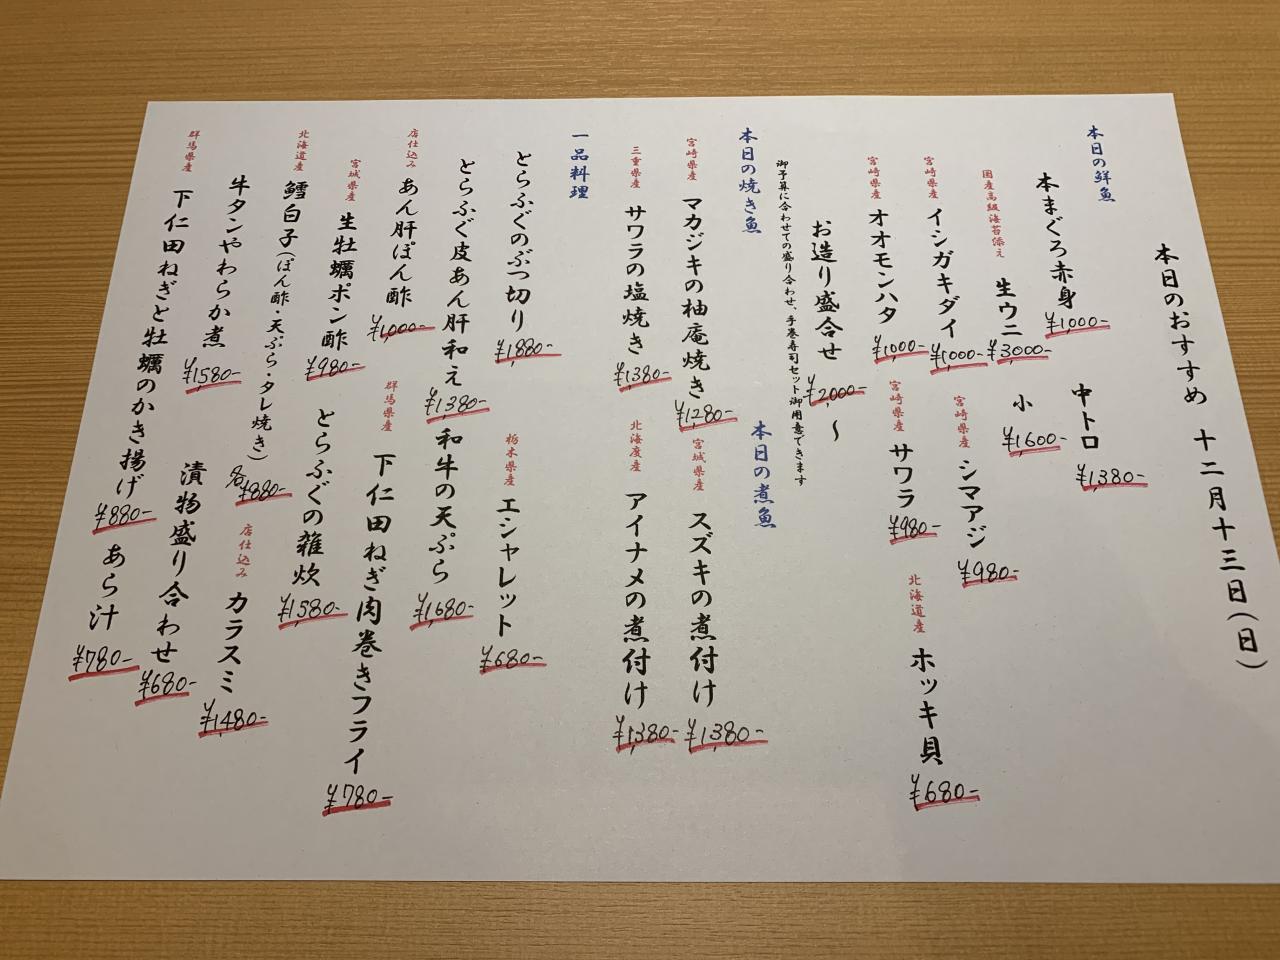 本日のおすすめ 十二月十三日(日)
本日の鮮魚
本まぐろ赤身 ¥1000-
中トロ ¥1,380-
国産高級海苔添え 生ウニ ¥3000-
小 ¥1600-
宮崎県産 イシガキダイ ¥1,000-
宮崎県産 シマアジ ¥980-
宮崎県産 オオモンハタ ¥1000-
宮崎県産 サワラ ¥980-
北海道産 ホッキ貝 ¥680-
お造り盛合せ ¥2,000- 〜
御予算に合わせての盛り合わせ、手巻寿司セット御用意できます
本日の焼き魚
宮崎県産 マカジキの柚庵焼き ¥1,280-
三重県産 サワラの塩焼き ¥1,380-
本日の煮魚
宮城県産 スズキの煮付け ¥1,380-
北海度産 アイナメの煮付け ¥1,380-
一品料理
とらふぐのぶつ切り ¥1,880-
栃木県産 エシャレット ¥680-
とらふぐ皮あん肝和え ¥1,380-
和牛の天ぷら ¥1,680-
店仕込み あん肝ぽん酢 ¥1,000-
群馬県産 下仁田ねぎ肉巻きフライ ¥780-
宮城県産 生牡蠣ポン酢 ¥980-
とらふぐの雑炊 ¥1,580-
北海道産 鱈白子(ぽん酢・天ぷら・タレ焼き) 各¥880-
店仕込み カラスミ ¥1,480-
牛タンやわらか煮 ¥1,580-
漬物盛り合わせ ¥680-
群馬県産 下仁田ねぎと牡蠣のかき揚げ ¥880-
あら汁 ¥780-